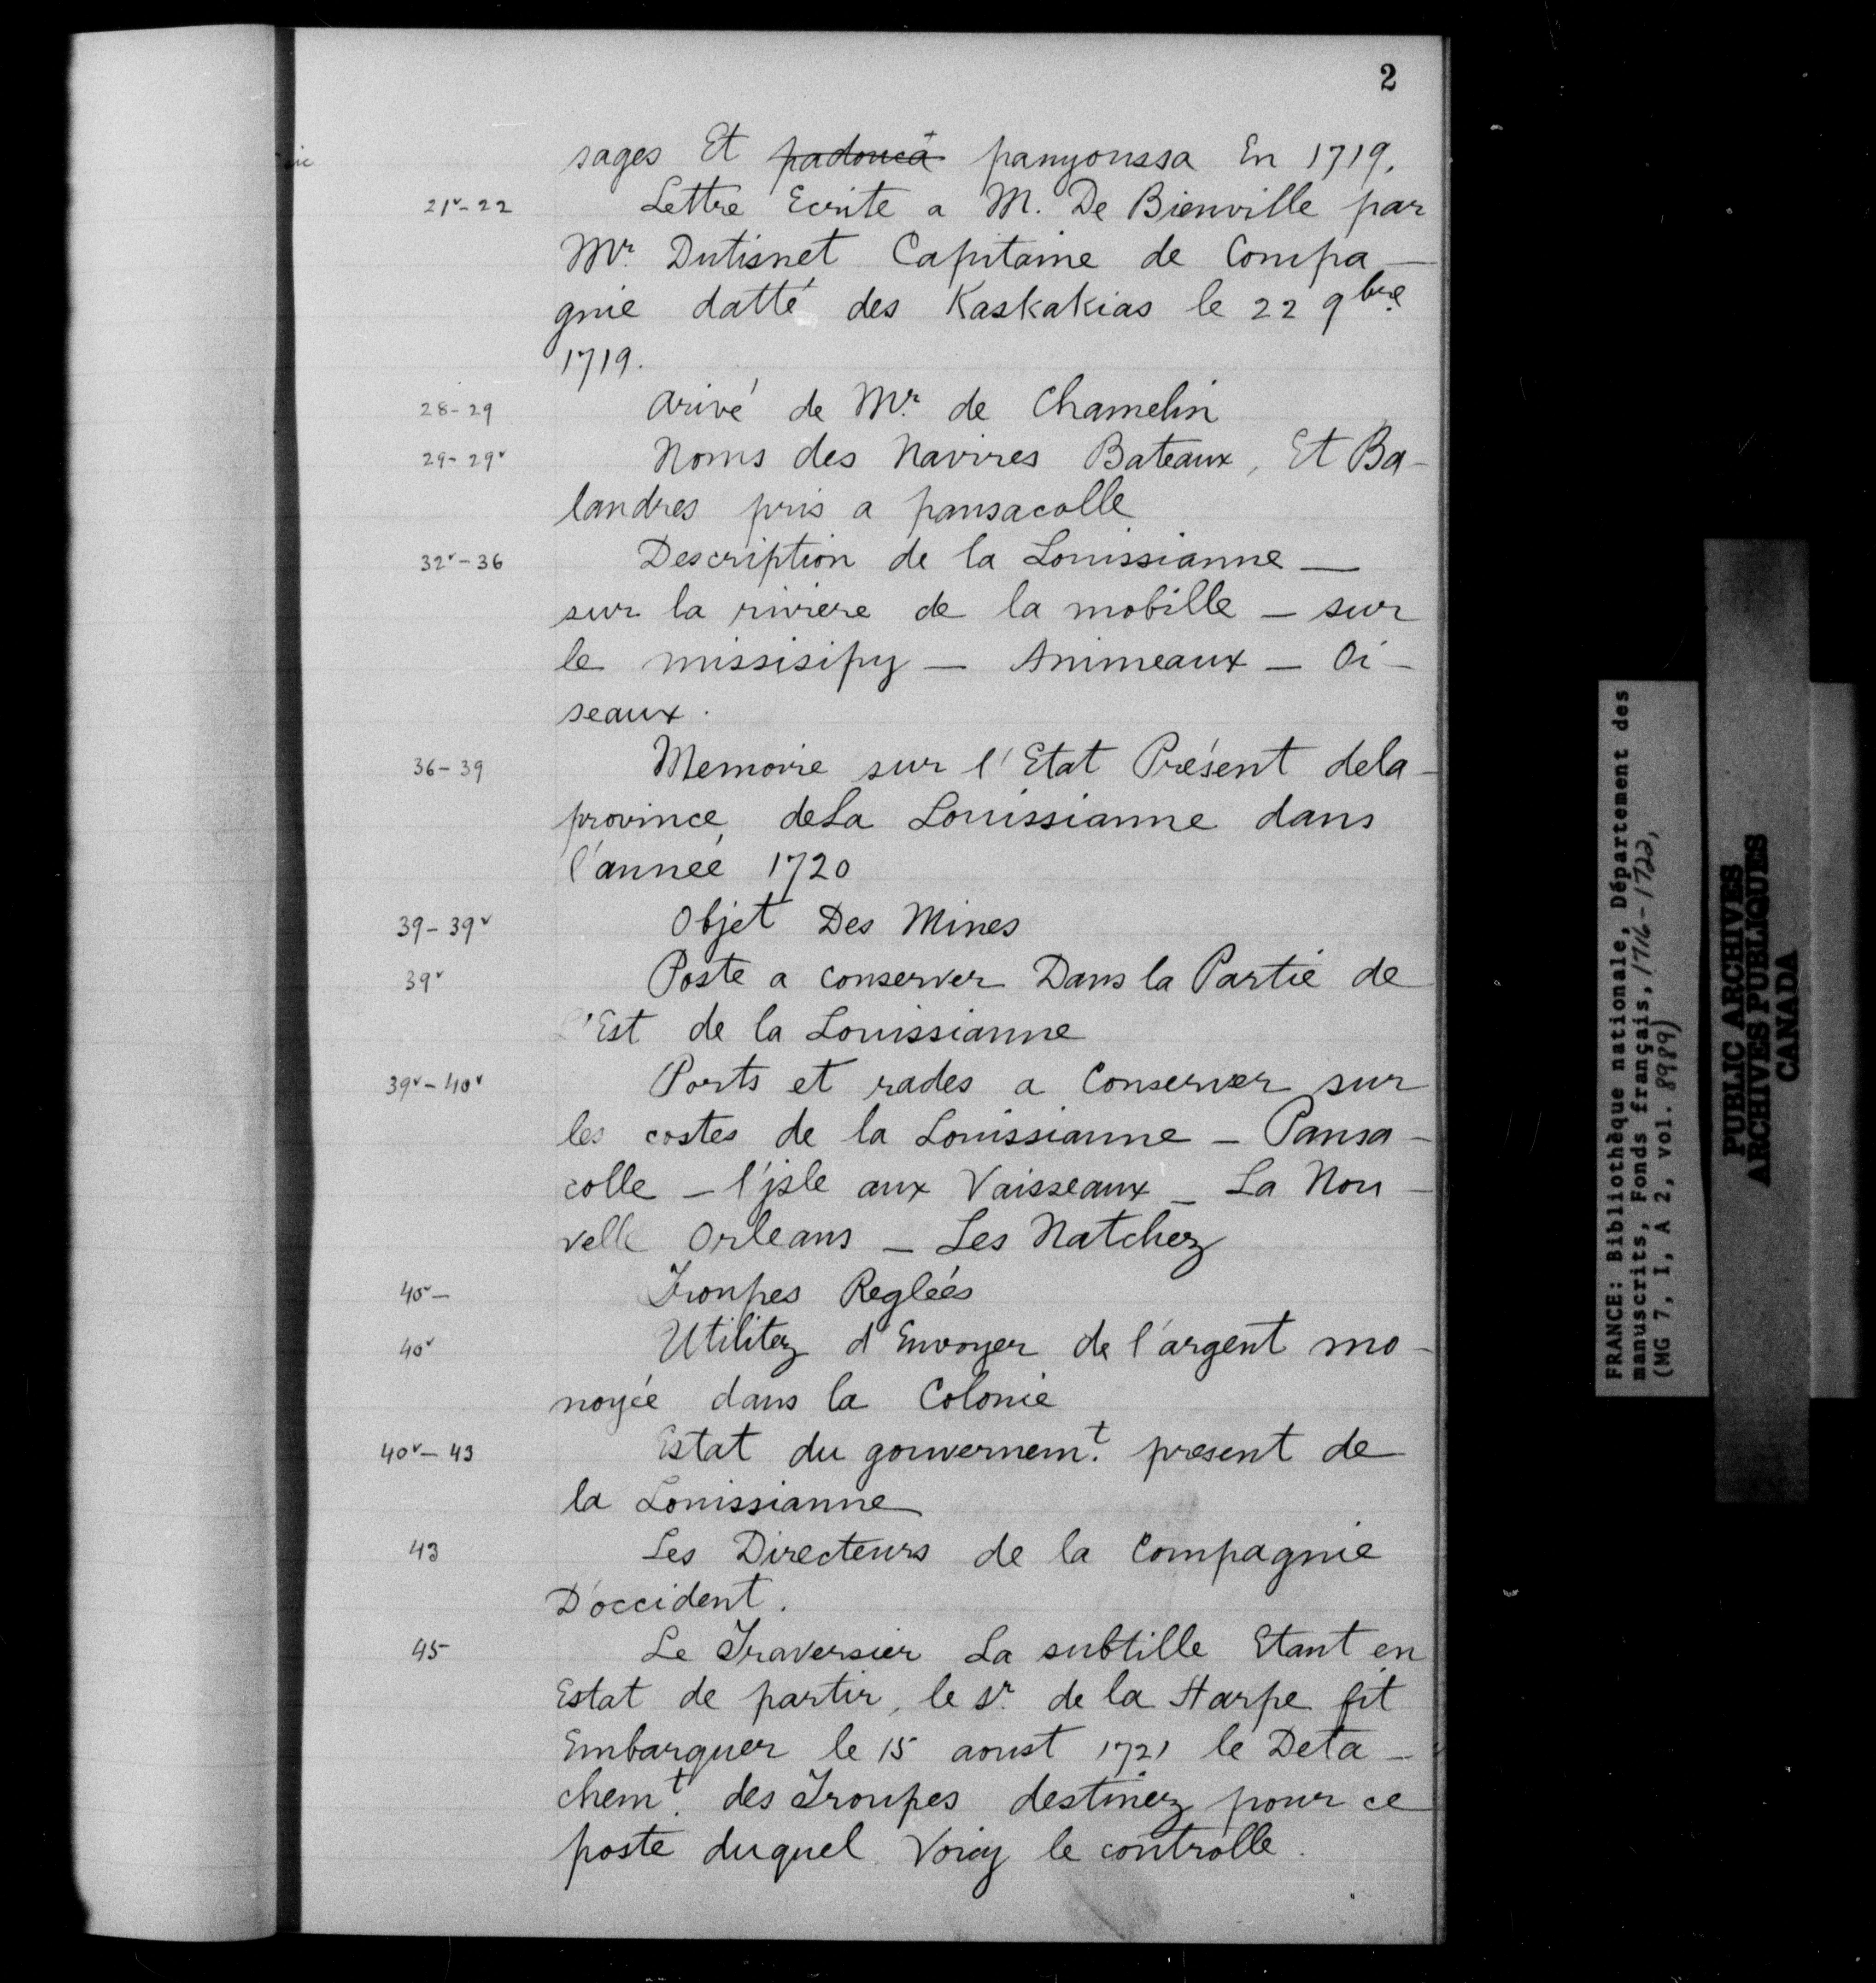 2
sages Et padouca panyoussa En 1719.
21v-22 Lettre Ecrite a M. De Bienville par
Mr. Dutisnet Capitaine de Compa-
gnie datté des Kaskakias le 22 9bre
1719.
28-29 arivé de Mr. de Chamelin
29-29v Noms des Navires Bateaux, Et Ba-
landres pris a pansacolle
32v-36 Description de la Louissianne —
sur la riviere de la mobille - sur
le missisipy - Animeaux - Oi-
seaux.
36-39 Memoire sur l'Etat Présent dela
province deLa Louissianne dans
l'année 1720
39-39v Objet Des Mines
39v Poste a conserver Dans la Partie de
l'Est de la Louissianne
39v-40v Ports et rades a Conserver sur
les costes de la Louissianne - Pansa-
colle - l'jsle aux Vaisseaux - La Nou-
velle Orleans - Les Natchez
40v- Troupes Reglées
40v Utilitez d'Envoyer de l'argent mo-
noyée dans la Colonie
40v-43 Estat du gouvernemt. present de
la Louissianne
43 Les Directeurs de la Compagnie
D'occident.
45 Le Traversier La subtille Etant en
Estat de partir, le Sr. de la Harpe fit
Embarquer le 15 aoust 1721 le Deta-
chemt. des Troupes destinez pour ce
poste duquel Voicy le controlle.
FRANCE: Bibliothèque nationale, Département des
manuscrits, Fonds français, 1716-1722,
(MG 7, I, A 2, vol. 8989)
PUBLIC ARCHIVES
ARCHIVES PUBLIQUES
CANADA